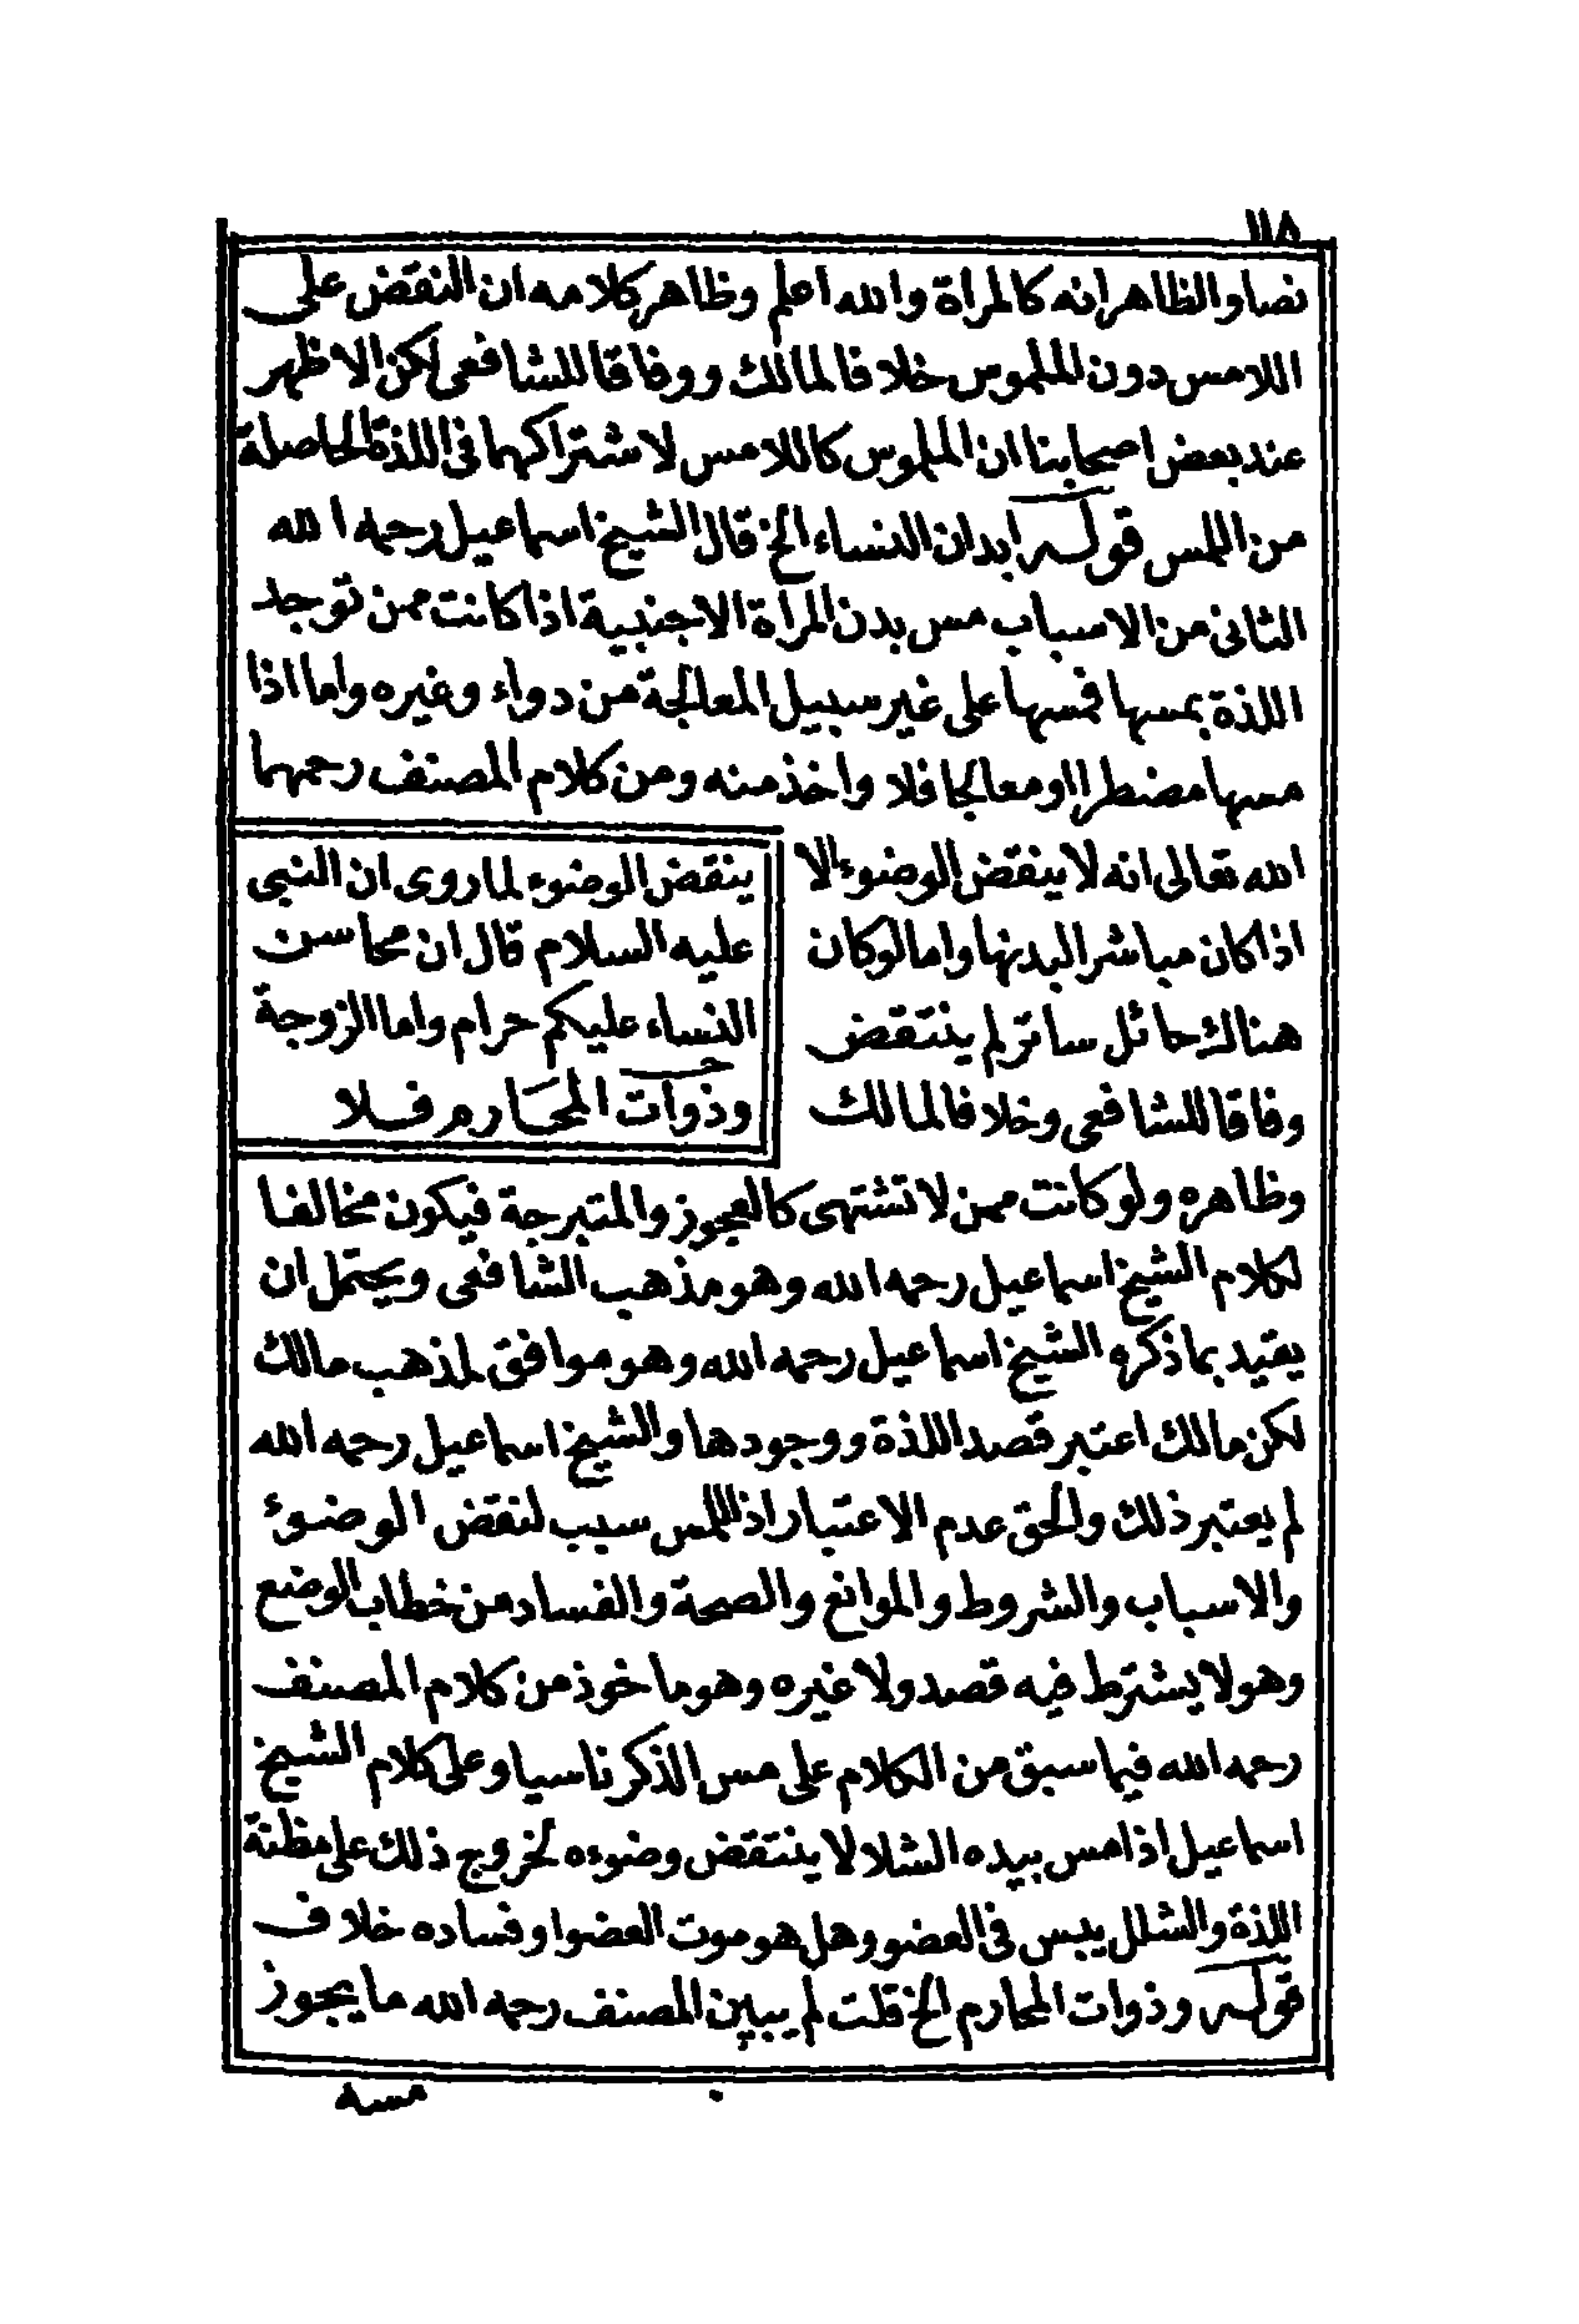 ١١٨
نصا والظاهر انه كالمراة والله اعلم وظاهر كلامه ان النقض على
اللامس دون الملموس خلافا لمالك ووفاقا للشافعى لكن الاظهر
عند بعض اصحابنا ان الملموس كاللامس لاشتراكهما فى اللذة الحاصلة
من اللمس قوله ابدان النساء الخ قال الشيخ اسماعيل رحمه الله
الثانى من الاسباب مس بدن المراة الاجنبية اذا كانت ممن توجد
اللذة بمسها فمسها على غير سبيل المعالجة من دواء وغيره واما اذا
مسها مضطرا او معالجا فلا واخذ منه ومن كلام المصنف رحمهما
الله تعالى انه لا ينقض الوضوء الا
اذا كان مباشر البدنها واما لو كان
هناك حائل ساتر لم ينتقض
وفاقا للشافعى وخلافا لمالك
ينقض الوضوء لما روى ان النبى
عليه السلام قال ان محاسن
النساء عليكم حرام واما الزوجة
وذوات المحارم فلا
وظاهره ولو كانت ممن لا تشتهى كالعجوز والمتبرجة فيكون مخالفا
لكلام الشيخ اسماعيل رحمه الله وهو مذهب الشافعى ويحتمل ان
يقيد بما ذكره الشيخ اسماعيل رحمه الله وهو موافق لمذهب مالك
لكن مالك اعتبر قصد اللذة ووجودها والشيخ اسماعيل رحمه الله
لم يعتبر ذلك والحق عدم الاعتبار اذ اللمس سبب لنقض الوضوء
والاسباب والشروط والموانع والصحة والفساد من خطاب الوضع
وهو لا يشترط فيه قصد ولا غيره وهو ماخوذ من كلام المصنف
رحمه الله فيما سبق من الكلام على مس الذكر ناسيا وعلى كلام الشيخ
اسماعيل اذا مس بيده الشلا لا ينتقض وضوءه لخروج ذلك على مظنة
اللذة والشلل يبس فى العضو وهل هو موت العضو او فساده خلاف
قوله وذوات المحارم الخ قلت لم يبين المصنف رحمه الله ما يجوز
مسه